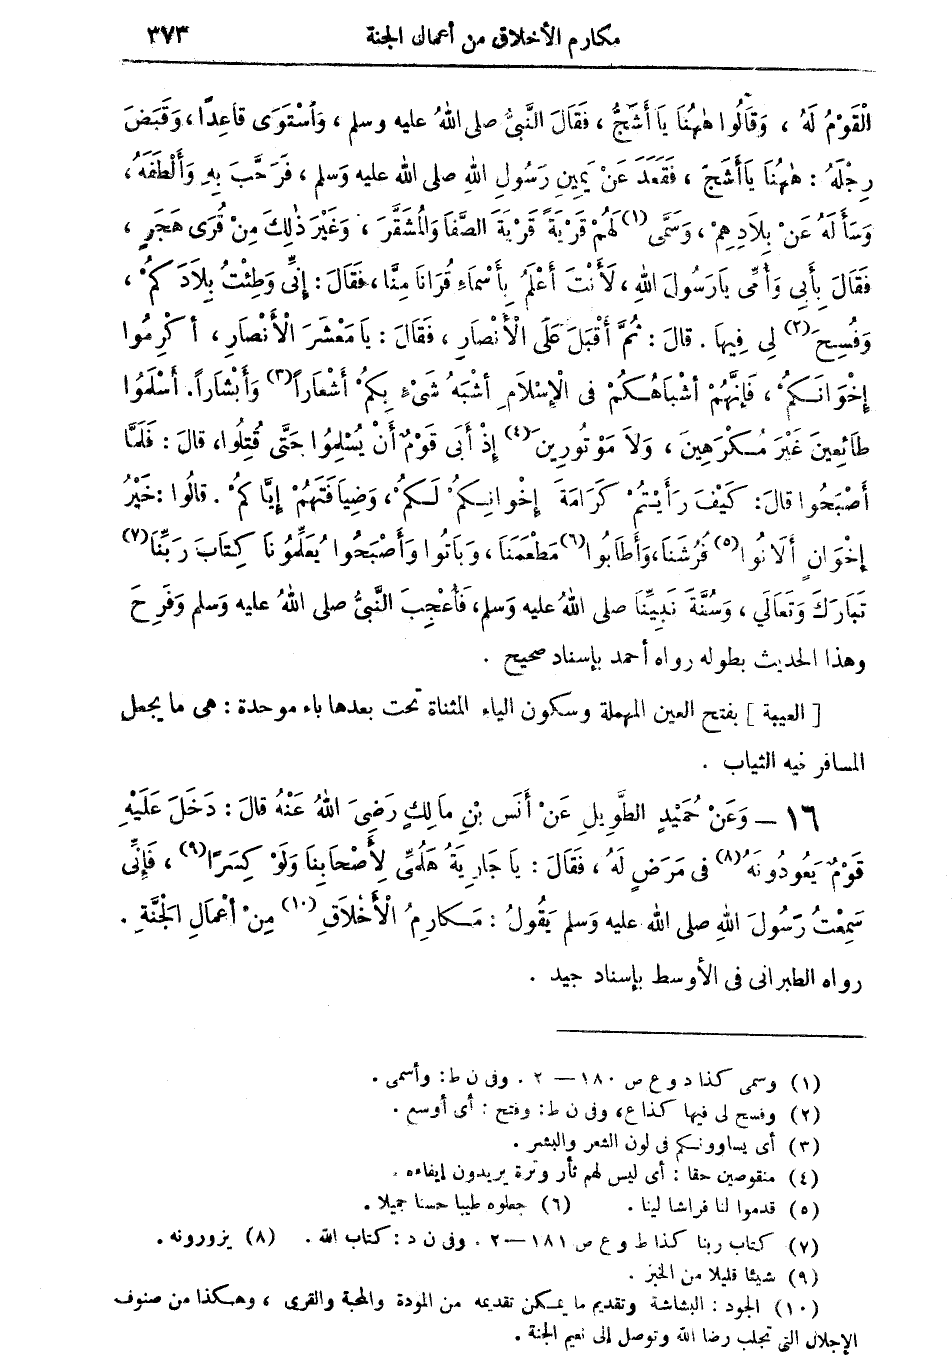 مكارم الأخلاق من أعمال الجنة ٣٧٣
الْقَوْمُ لَهُ ، وَقَالُوا هٰهُنَا يَا أَشَجُّ ، فَقَالَ النَّبِيُّ صلى اللهُ عليه وسلم ، وَاُسْتَوَى قاعِدًا ، وَقَبَضَ
رِجْلَهُ : هٰهُنَا يَا أَشَجَّ ، فَقَعَدَ عَنْ يَمِينِ رَسُولِ اللهِ صلى الله عليه وَسلم ، فَرَحَّبَ بِهِ وَأَلْطَفَهُ ،
وَسَأَلَهُ عَنْ بِلَادِهِمْ ، وَسَمَّى (١) لَهُمْ قَرْيَةً قَرْيَةَ الصَّفَا وَالْمُشَقَّرَ ، وَغَيْرَ ذٰلِكَ مِنْ قُرَى هَجَرٍ ،
فَقَالَ بِأَبِي وَأُمِّى يَارَسُولَ اللهِ ، لَأَنْتَ أَعْلَمُ بِأَسْمَاءِ قُرَانَا مِنَّا ، فَقَالَ : إِنِّى وَطِئْتُ بِلَادَكُمْ ،
وَفُسِحَ (٢) لِى فِيهَا . قالَ : ثُمَّ أَقْبَلَ عَلَى الْأَنْصَارِ ، فَقَالَ : يَا مَعْشَرَ الْأَنْصَارِ ، أَكْرِمُوا
إِخْوَانَكُمْ ، فَإِنَّهُمْ أَشْبَاهُكُمْ فى الْإِسْلَامِ أَشْبَهُ شَىْءٍ بِكُمْ أَشْعَاراً (٣) وَأَبْشَاراً . أَسْلَمُوا
طَائِعِينَ غَيْرَ مُكْرَهِينَ ، وَلَا مَوْتُورِينَ (٤) إِذْ أَبَى قَوْمٌ أَنْ يُسْلِمُوا حَتَّى قُتِلُوا، قالَ : فَلَمَّا
أَصْبَحُوا قالَ : كَيْفَ رَأَيْتُمْ كَرَامَةَ إِخْوَانِكُمْ لَكُمْ، وَضِيَافَتَهُمْ إِيَّاكُمْ . قالُوا : خَيْرُ
إِخْوَانٍ أَلَانُوا (٥) فُرُشَنَا، وَأَطَابُوا (٦) مَطْعَمَنَا ، وَبَاتُوا وَأَصْبَحُوا يُعَلِّمُونَا كِتَابَ رَبِّنَا (٧)
تَبَارَكَ وَتَعَالَي ، وَسُنَّةَ نَبِيِّنَا صلى اللهُ عليه وَسلم، فَأُعْجِبَ النَّبِيُّ صلى اللهُ عليه وَسلم وَفَرِحَ
وهذا الحديث بطوله رواه أحمد بإسناد صحيح .
[ العيبة ] بفتح العين المهملة وسكون الياء المثناة تحت بعدها باء موحدة : هى ما يجعل
المسافر فيه الثياب .
١٦ – وَعَنْ حُمَيْدٍ الطَّوِيلِ عَنْ أَنَسِ بْنِ مَالِكٍ رَضِىَ اللهُ عَنْهُ قالَ : دَخَلَ عَلَيْهِ
قَوْمٌ يَعُودُونَهُ (٨) فى مَرَضٍ لَهُ ، فَقَالَ : يَا جَارِيَةُ هَلُمِّى لِأَصْحَابِنَا وَلَوْ كِسَرًا (٩) ، فَإِنِّى
سَمِعْتُ رَسُولَ اللهِ صلى الله عليه وَسلم يَقُولُ : مَكارِمُ الْأَخْلَاقِ (١٠) مِنْ أَعْمَالِ الْجَنَّةِ .
رواه الطبرانى فى الأوسط بإسناد جيد .
(١) وسمى كذا د و ع ص ١٨٠ – ٢ . وفى ن ط : وأسمى .
(٢) وفسح لى فيها كذا ع، وفى ن ط : وفتح : أى أوسع .
(٣) أى يساوونكم فى لون الشعر والبشر .
(٤) منقوصين حقا : أى ليس لهم ثأر وترة يريدون إيفاءه .
(٥) قدموا لنا فراشا لينا . (٦) جعلوه طيبا حسنا جميلا .
(٧) كتاب ربنا كذا ط و ع ص ١٨١–٢ . وفى ن د : كتاب الله . (٨) يزورونه .
(٩) شيئا قليلا من الخبز .
(١٠) الجود : البشاشة وتقديم ما يمكن تقديمه من المودة والمحبة والقرى ، وهكذا من صنوف
الإجلال التى تجلب رضا الله وتوصل إلى نعيم الجنة .